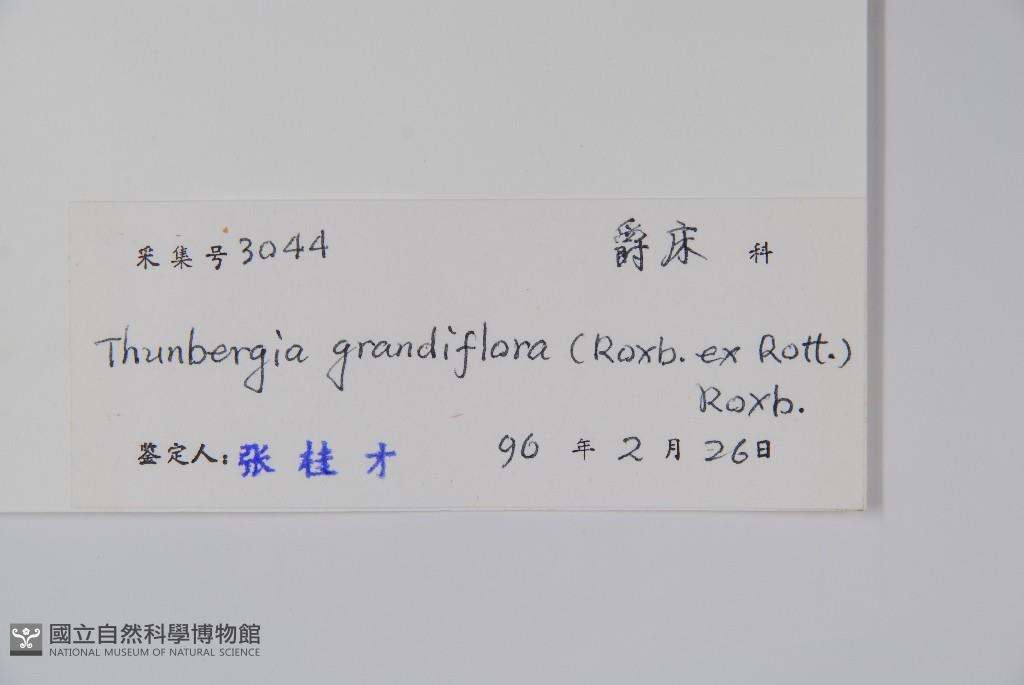 采集号 3044 爵床 科
Thunbergia grandiflora (Roxb. ex Rott.)
Roxb.
鉴定人: 张桂才 96 年 2 月 26 日
國立自然科學博物館
NATIONAL MUSEUM OF NATURAL SCIENCE